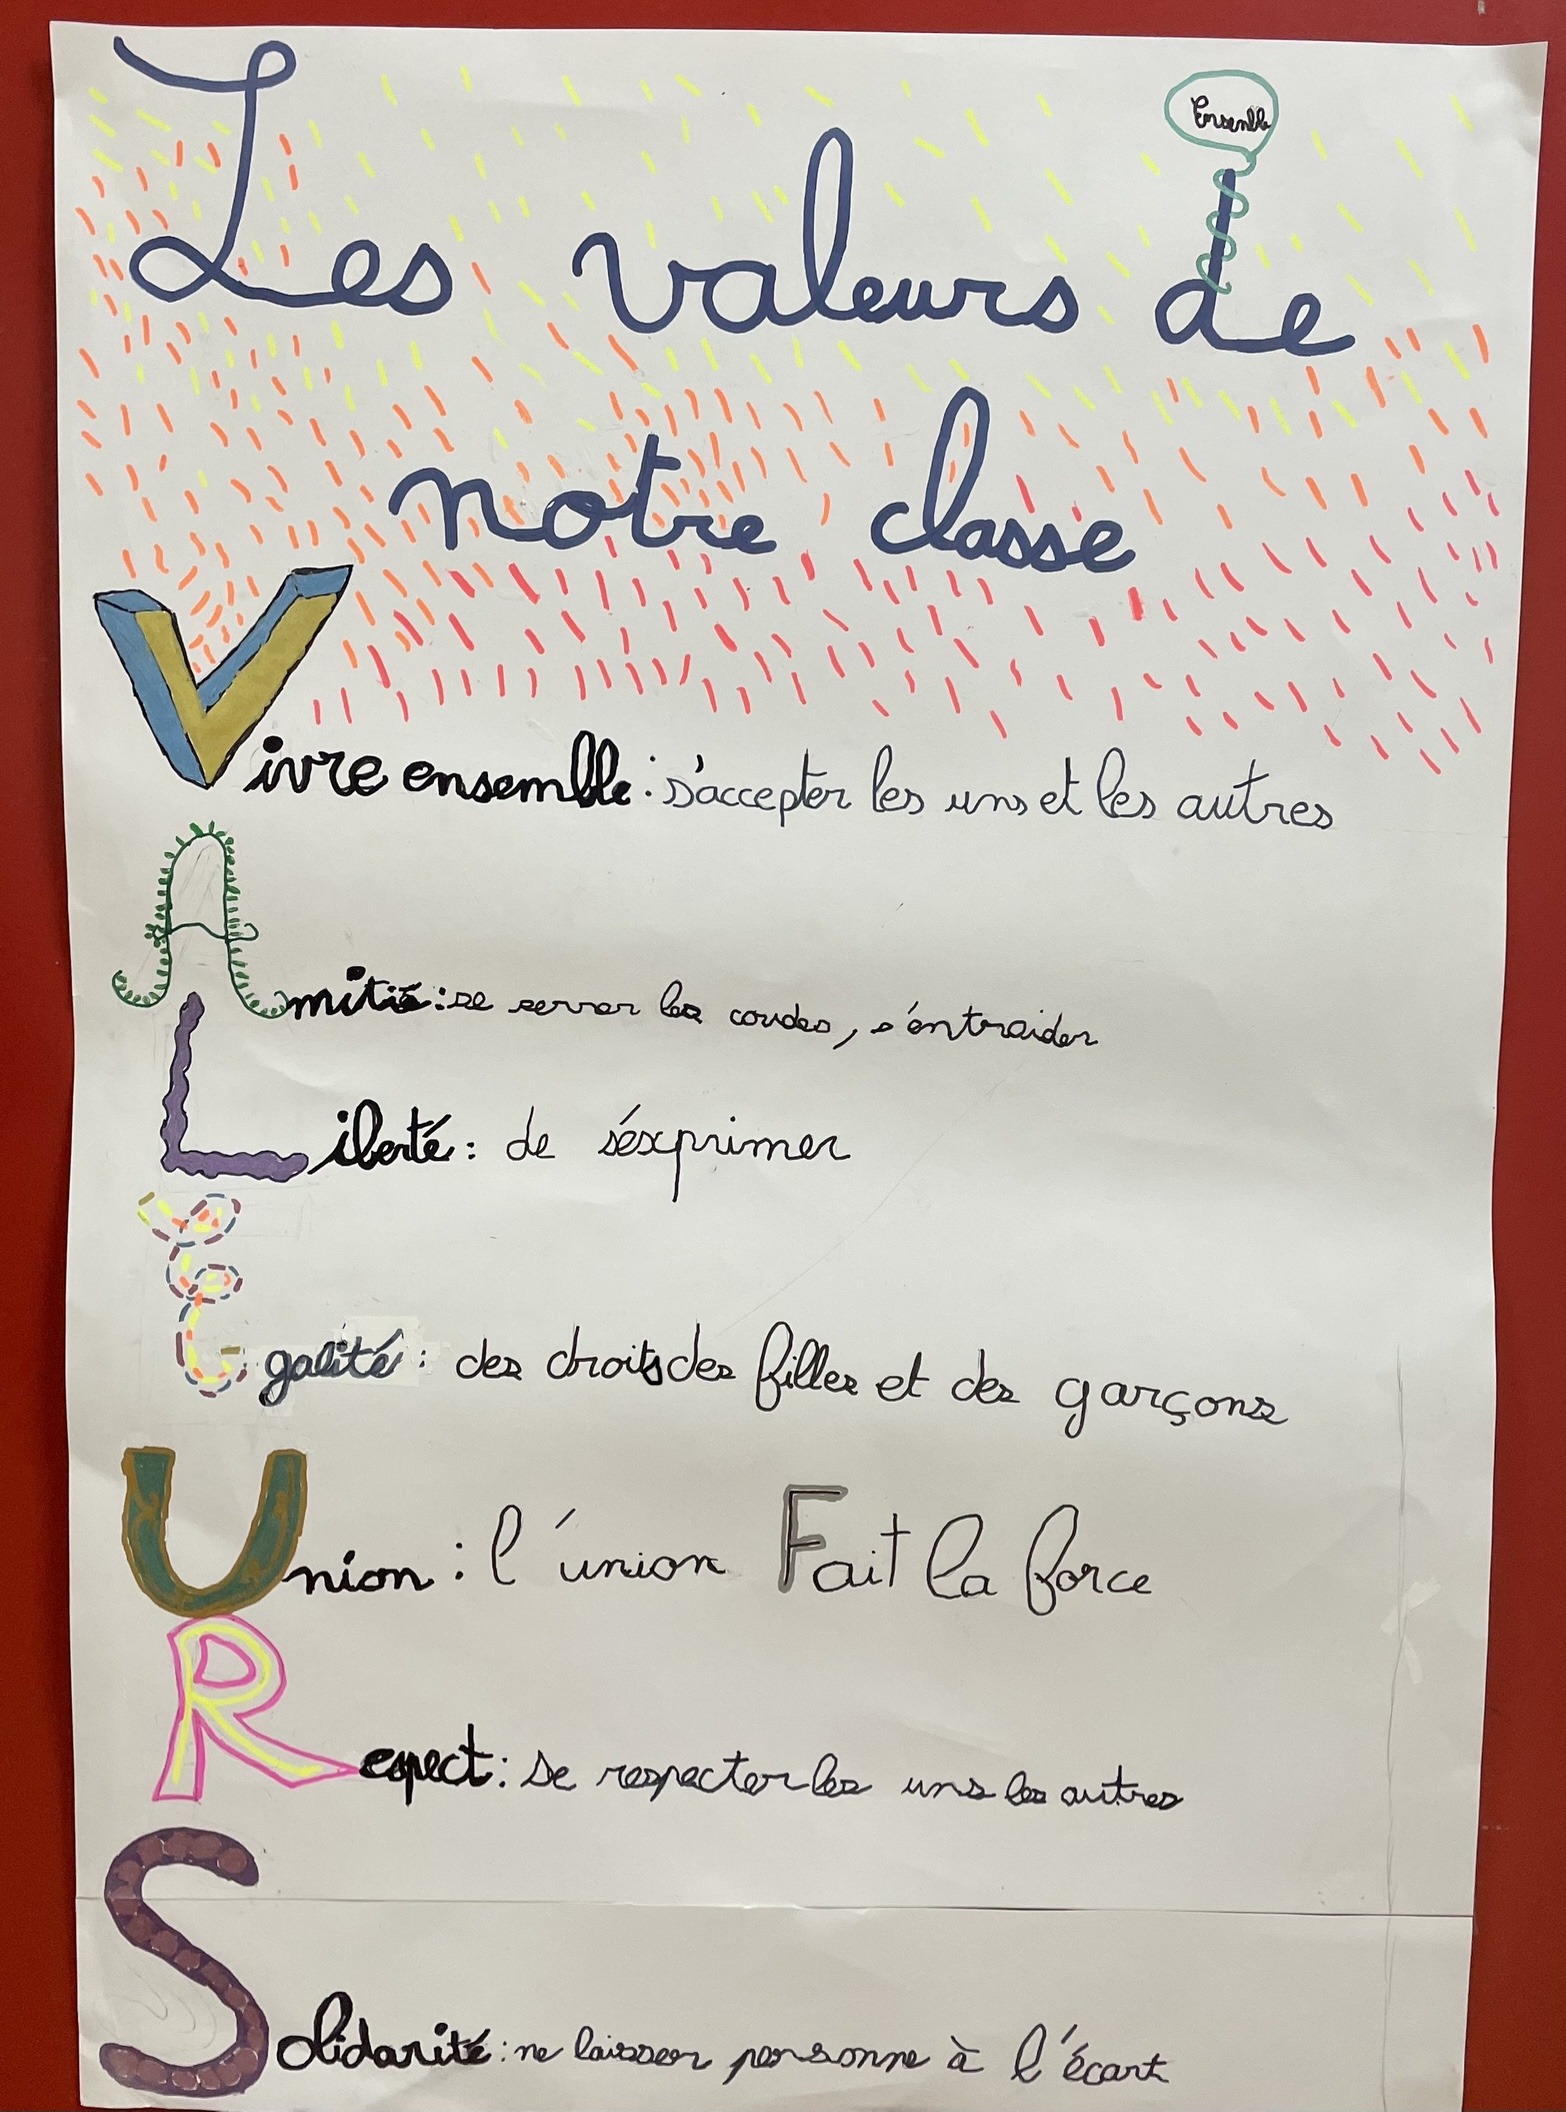 Ensemble
Les valeurs de
notre classe
Vivre ensemble : s'accepter les uns et les autres
Amitié : se serrer les coudes, s'entraider
Liberté : de s'éxprimer
Egalité : des droits des filles et des garçons
Union : l'union Fait la force
Respect : se respecter les uns les autres
Solidarité : ne laisser personne à l'écart